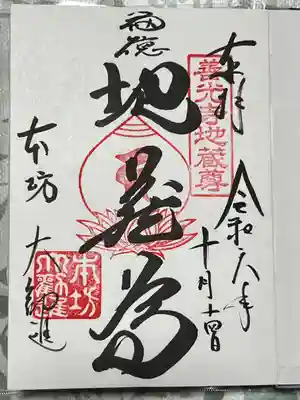 奉拝
善光寺地蔵尊
令和六年
十月十四日
福徳
地蔵尊
本坊
大勧進